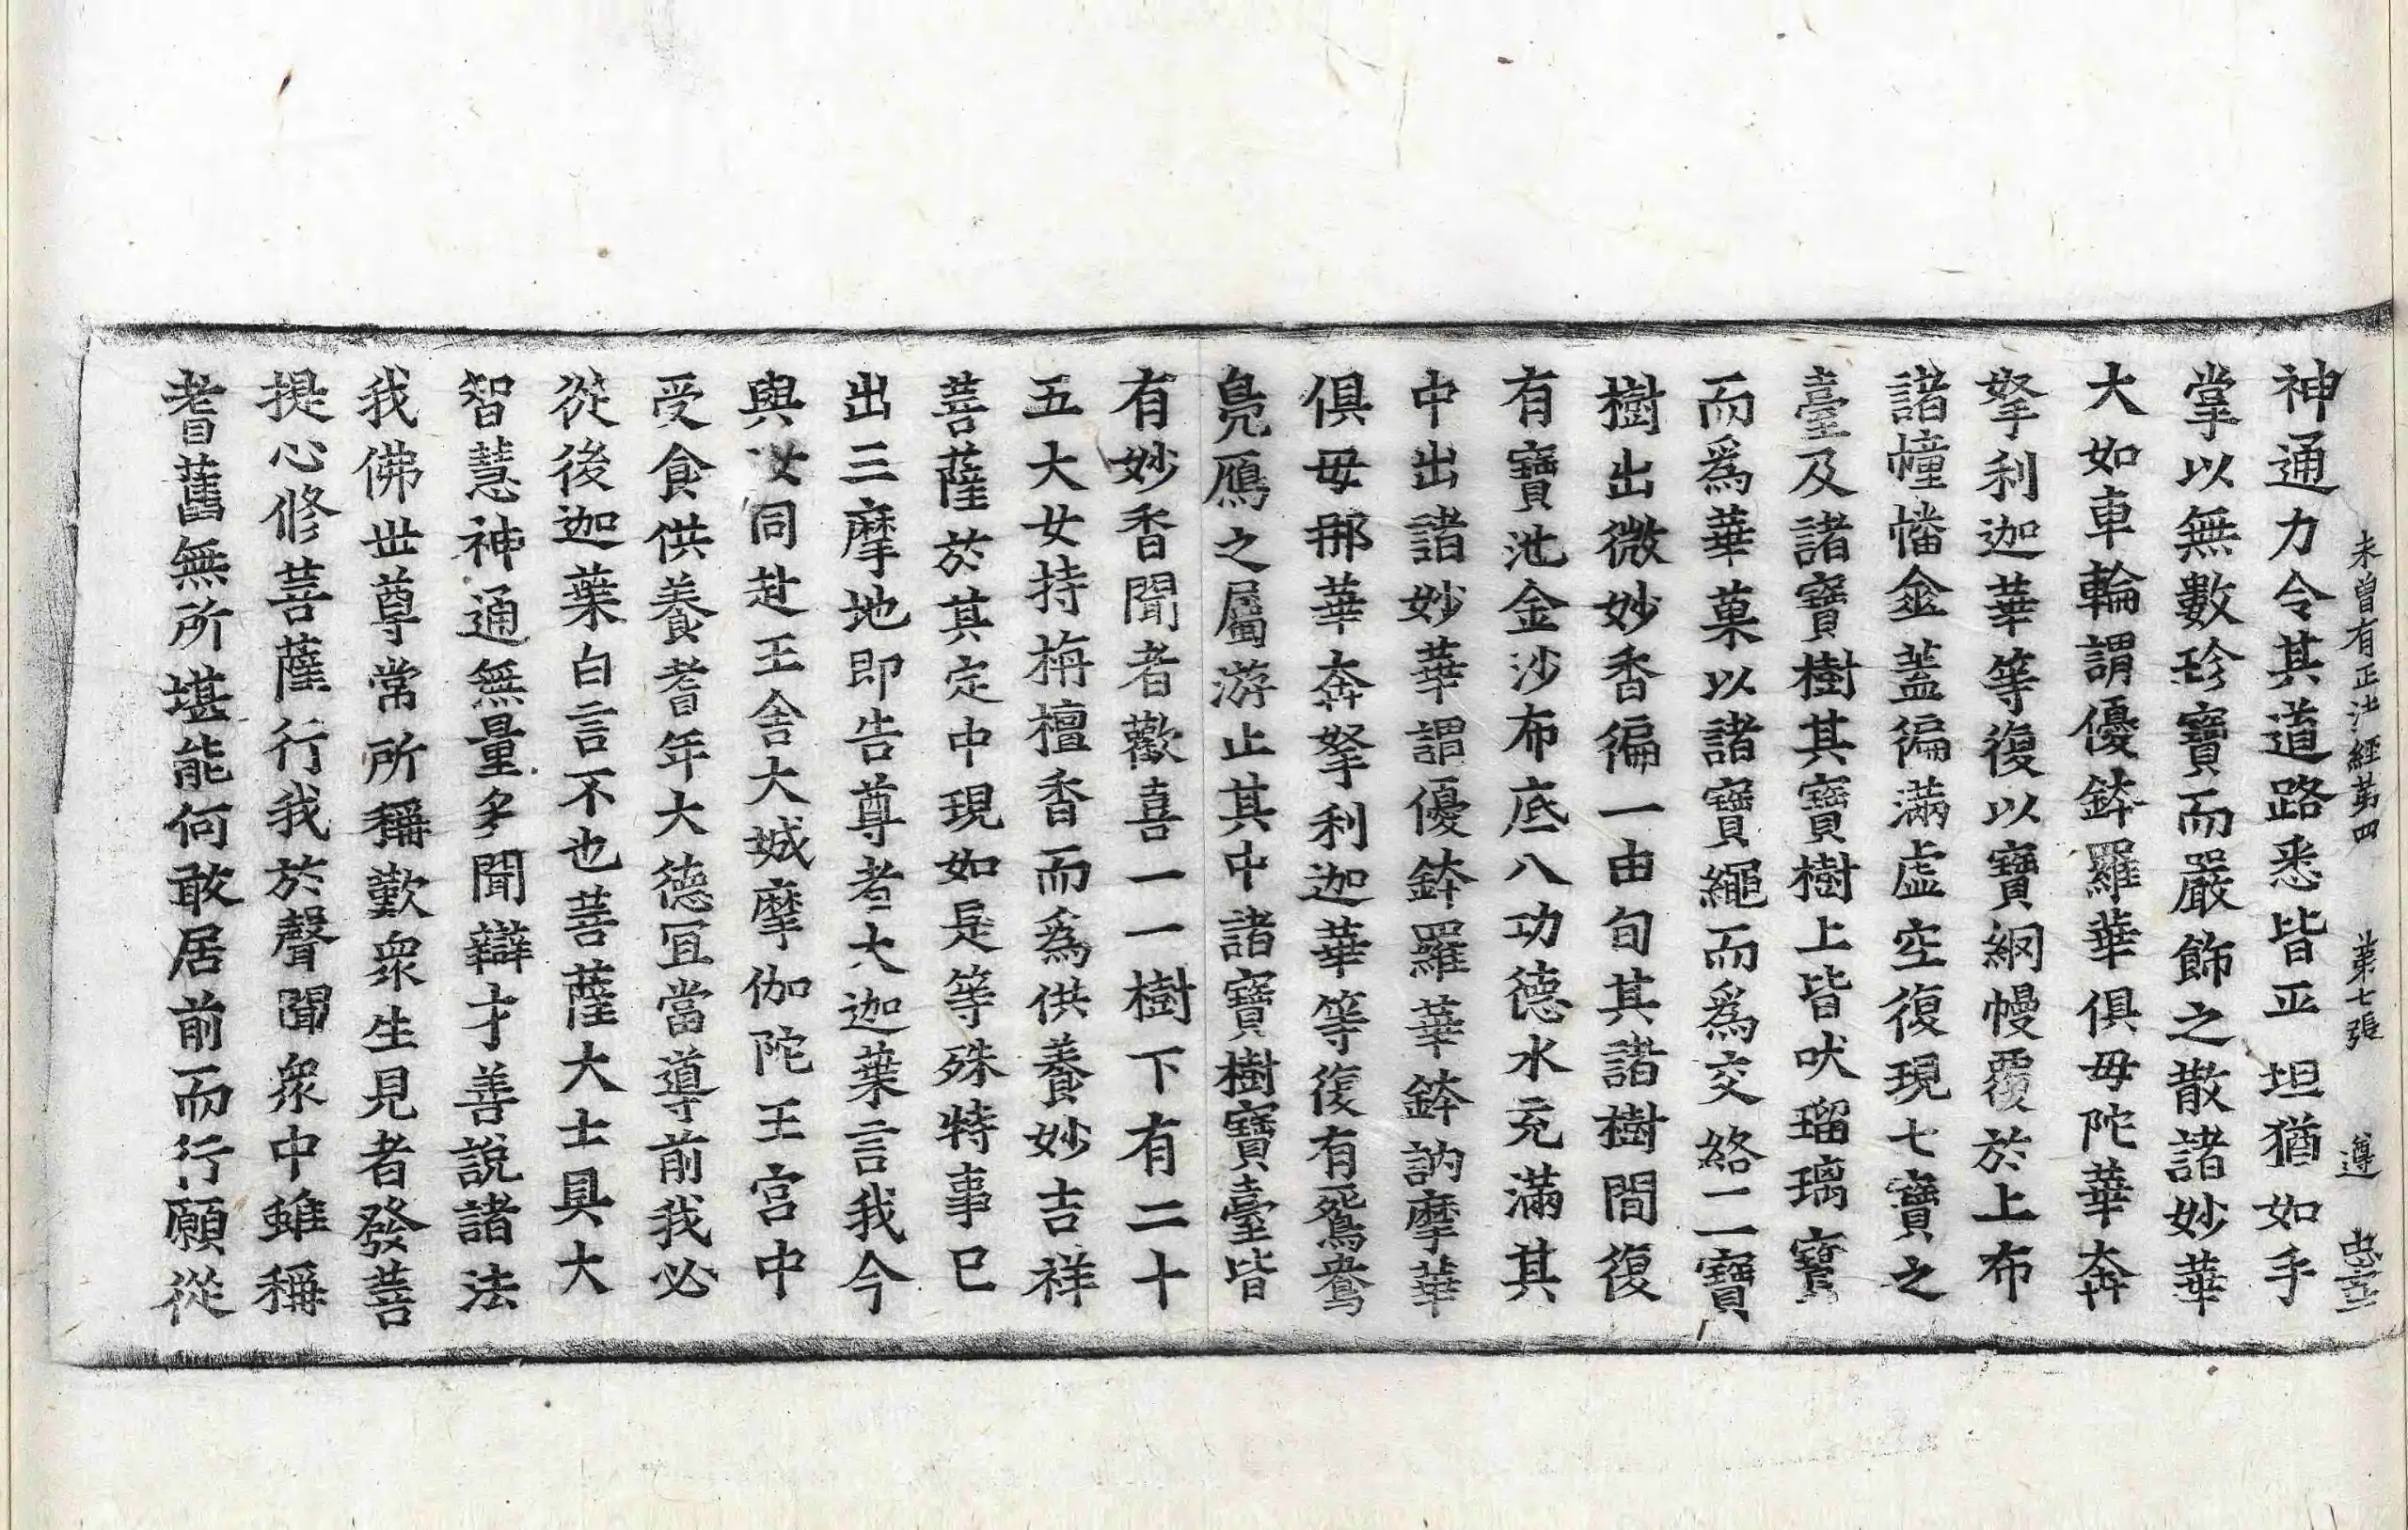 未曾有正法經第四 第七張 遵
神通力令其道路悉皆平坦猶如手
掌以無數珍寶而嚴飾之散諸妙華
大如車輪謂優鉢羅華俱毋陀華奔
拏利迦華等復以寶網幔覆於上布
諸幢幡傘蓋徧滿虛空復現七寶之
臺及諸寶樹其寶樹上皆吠瑠璃寶
而爲華菓以諸寶繩而爲交絡一一寶
樹出微妙香徧一由旬其諸樹間復
有寶池金沙布底八功德水充滿其
中出諸妙華謂優鉢羅華鉢訥摩華
俱毋那華奔拏利迦華等復有鴛鴦
鳧鴈之屬游止其中諸寶樹寶臺皆
有妙香聞者歡喜一一樹下有二十
五大女持栴檀香而爲供養妙吉祥
菩薩於其定中現如是等殊特事已
出三摩地即告尊者大迦葉言我今
與汝同赴王舍大城摩伽陀王宮中
受食供養耆年大德宜當導前我必
從後迦葉白言不也菩薩大士具大
智慧神通無量多聞辯才善說諸法
我佛世尊常所稱歎衆生見者發菩
提心修菩薩行我於聲聞衆中雖稱
耆舊無所堪能何敢居前而行願從